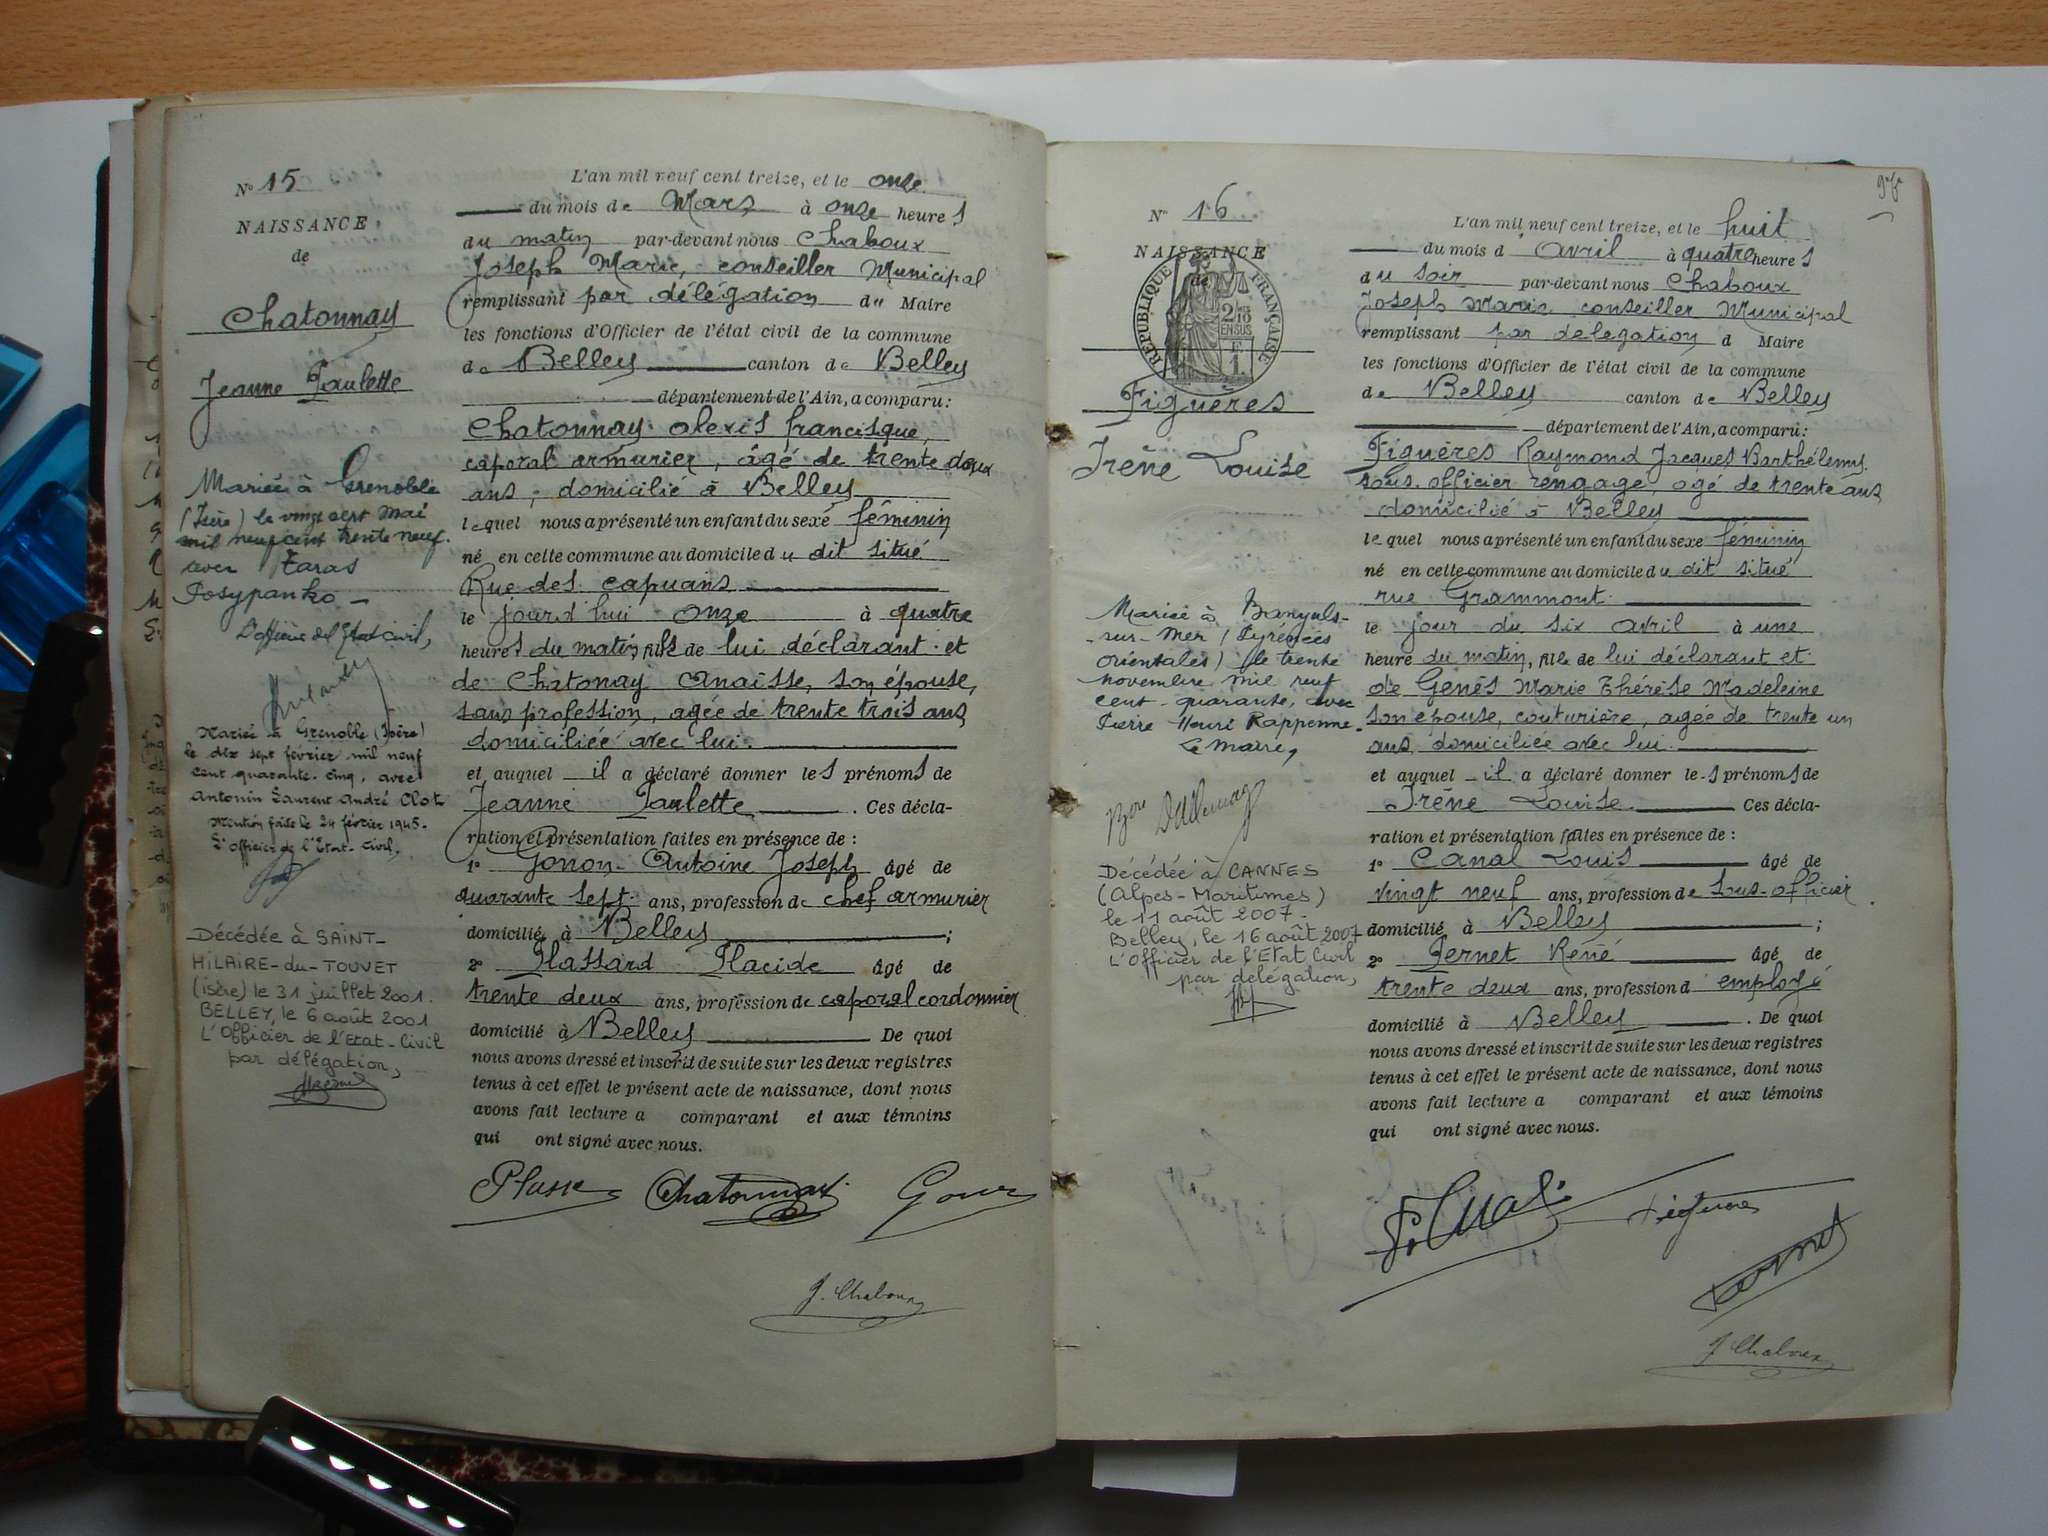 N° 15
NAISSANCE
de
Chatonnay
Jeanne Paulette
Mariée à Grenoble
(Isère) le vingt sept Mai
mil neuf cent trente neuf.
avec Taras
Posypanko
L'officier de l'Etat civil,
Mariée à Grenoble (Isère)
le dix sept février mil neuf
cent quarante-cinq, avec
Antonin Laurent André Clot.
Mention faite le 24 février 1945.
L'officier de l'Etat-Civil,
Décédée à SAINT-
HILAIRE-du-TOUVET
(isère) le 31 juillet 2001.
BELLEY, le 6 août 2001
L'Officier de l'Etat-Civil
par délégation,
L'an mil neuf cent treize, et le onze
du mois de Mars à onze heures
du matin par-devant nous Chaboux
Joseph Marie, conseiller Municipal
remplissant par délégation du Maire
les fonctions d'Officier de l'état civil de la commune
de Belley canton de Belley
département de l'Ain, a comparu:
Chatonnay alexis francisque,
caporal armurier, âgé de trente deux
ans, domicilié à Belley
lequel nous a présenté un enfant du sexe féminin
né en cette commune au domicile du dit situé
Rue des capucins
le jourd'hui onze à quatre
heures du matin, fils de lui déclarant et
de Chatonay Anaïsse, son épouse,
sans profession, agée de trente trois ans,
domiciliée avec lui.
et auquel il a déclaré donner les prénoms de
Jeanne Paulette. Ces décla-
ration et présentation faites en présence de :
1° Gonon Antoine Joseph âgé de
quarante sept ans, profession de chef armurier
domicilié à Belley ;
2° Plassard Placide âgé de
trente deux ans, profession de caporal cordonnier
domicilié à Belley De quoi
nous avons dressé et inscrit de suite sur les deux registres
tenus à cet effet le présent acte de naissance, dont nous
avons fait lecture a comparant et aux témoins
qui ont signé avec nous.
Chatonnay
J. Chaboux
N° 16
NAISSANCE
de
RÉPUBLIQUE FRANÇAISE
2/10
EN SUS
Figuères
Irène Louise
Mariée à Banyuls-
-sur-Mer (Pyrénées
Orientales) le trente
novembre mil neuf
cent-quarante, avec
Pierre Henri Rappenne.
Le Maire,
Décédée à CANNES
(Alpes-Maritimes)
le 11 août 2007.
Belley, le 16 août 2007
L'Officier de l'Etat Civil
par délégation,
L'an mil neuf cent treize, et le huit
du mois d'avril à quatre heures
du soir par-devant nous Chaboux
Joseph Marie conseiller Municipal
remplissant par délégation d Maire
les fonctions d'Officier de l'état civil de la commune
de Belley canton de Belley
département de l'Ain, a comparu:
Figuères Raymond Jacques Barthélemy
sous-officier rengagé, agé de trente ans
domicilié à Belley
lequel nous a présenté un enfant du sexe féminin
né en cette commune au domicile du dit situé
rue Grammont
le jour du six avril à une
heure du matin, fille de lui déclarant et
de Genès Marie Thérèse Madeleine
son épouse, couturière, agée de trente un
ans domiciliée avec lui.
et auquel il a déclaré donner les prénoms de
Irène Louise Ces décla-
ration et présentation faites en présence de :
1° Canal Louis âgé de
vingt neuf ans, profession de sous-officier
domicilié à Belley ;
2° Pernet René âgé de
trente deux ans, profession d employé
domicilié à Belley. De quoi
nous avons dressé et inscrit de suite sur les deux registres
tenus à cet effet le présent acte de naissance, dont nous
avons fait lecture a comparant et aux témoins
qui ont signé avec nous.
J. Chaboux